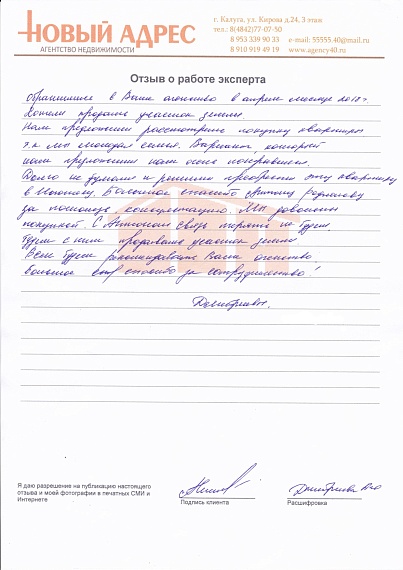 НОВЫЙ АДРЕС
АГЕНТСТВО НЕДВИЖИМОСТИ
г. Калуга, ул. Кирова д.24, 3 этаж
тел.: 8(4842)77-07-50
8 953 339 90 33 e-mail: 55555.40@mail.ru
8 910 919 49 19 www.agency40.ru
Отзыв о работе эксперта
Обратились в Ваше агентство в апреле месяце 2018 г.
Хотели продать участок земли.
Нам предложили рассмотреть покупку квартиры
т.к. мы молодая семья. Вариант, который
нам предложили нам очень понравился.
Долго не думали и решили приобрести эту квартиру
в Ипотеку. Большое спасибо
за помощь, консультацию. Мы довольны
покупкой. С Антоном связь терять не будем.
Будем с ним продавать участок земли.
Всем будем рекомендовать Ваше агентство
Большое спасибо за сотрудничество!
Я даю разрешение на публикацию настоящего
отзыва и моей фотографии в печатных СМИ и
Интернете
Подпись клиента
Расшифровка